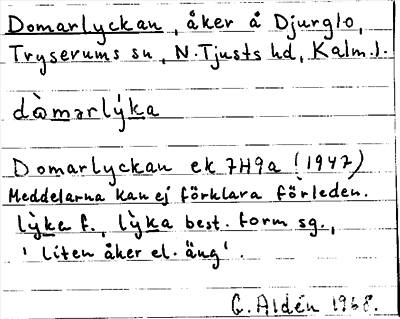 Domarlyckan, åker å Djurglo,
Tryserums sn, N. Tjusts hd, Kalm. l.
dòmarlý̀ka
Domarlyckan ek 7H9a (1947)
Meddelarna kan ej förklara förleden.
lỳka f., lỳka best. form sg.,
' liten åker el. äng'.
G. Aldén 1968.